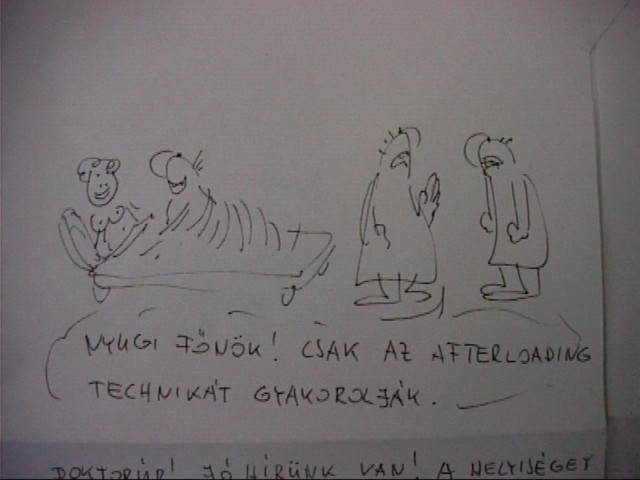 NYUGI FŐNÖK! CSAK AZ AFTERLOADING
TECHNIKÁT GYAKOROLJÁK.
DOKTORÚR! JÓ HÍRÜNK VAN! A HELYISÉGET